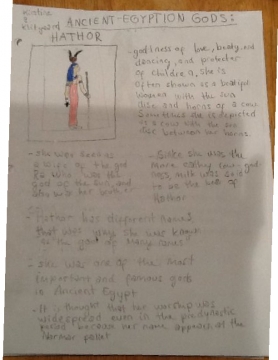 ANCIENT-EGYPTION GODS:
HATHOR
-goddness of love, beuty, and
dancing, and protecter
of children, she is
often shown as a
woman with the sun
disc and horns of a cow
Sometimes she is depicted
as a cow with the sun
disc between her horns.
-she was seen as
a wife of the god
Ra who was the
god of the sun, and
she was her birth
she was the
more cow god
milk was
to as the beer of
Hathor
-Hathor has different names
that was she was known
as the god of many names
-she was one of the most
important and famous gods
in Ancient Egypt
-It is thought that her worship was
widespread even in the predynastic
period because her name appears at the
Narmer pallet